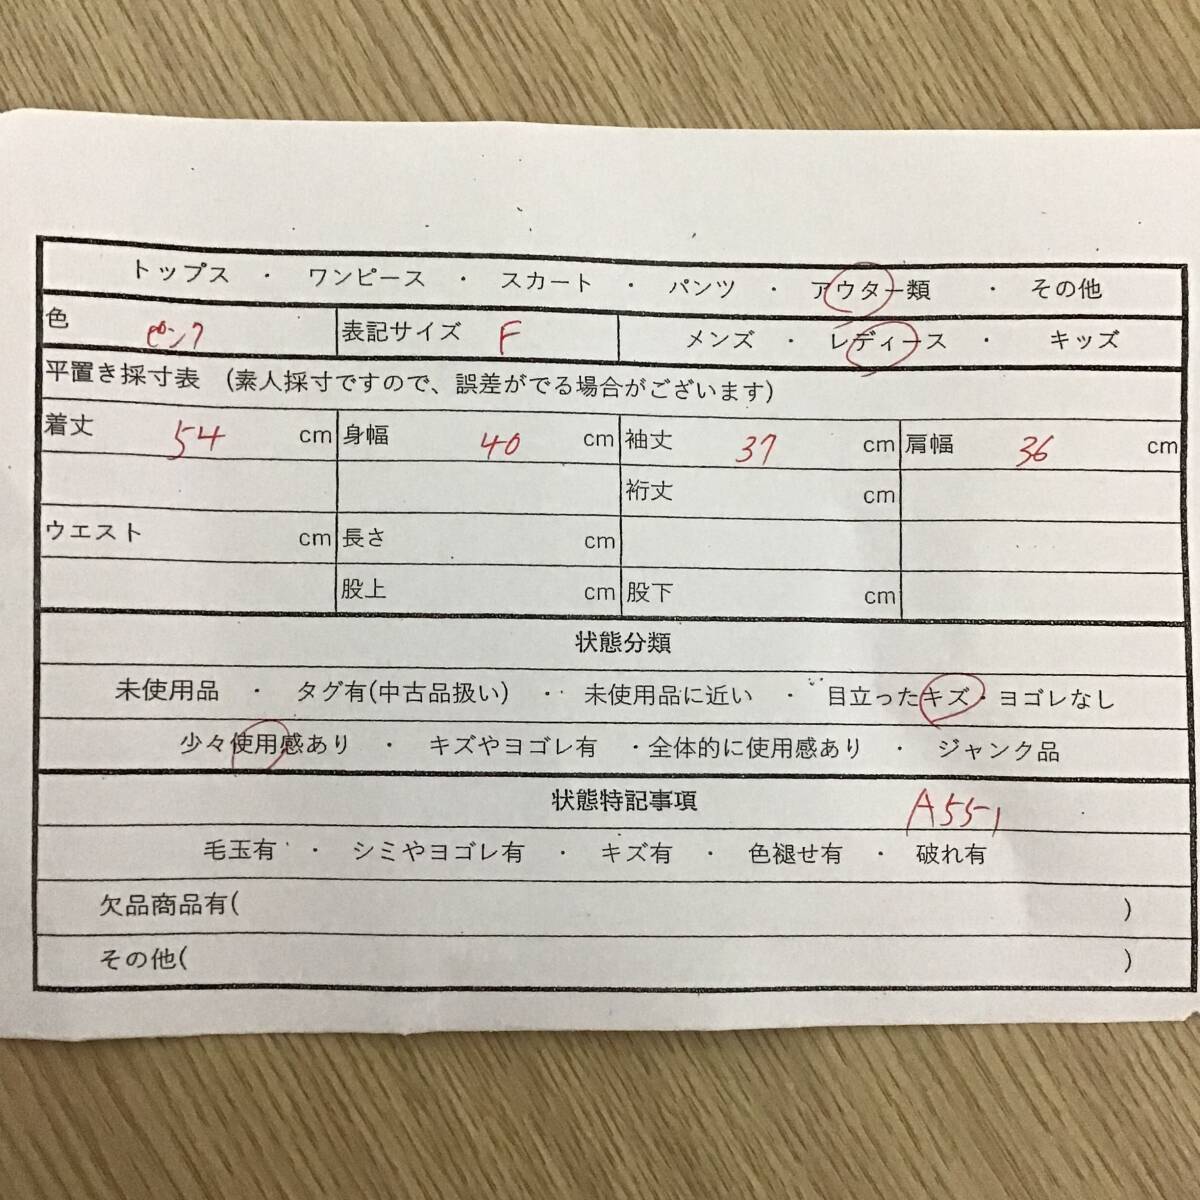 トップス ・ ワンピース ・ スカート ・ パンツ ・ アウター類 ・ その他
色 ピンク 表記サイズ F メンズ ・ レディース ・ キッズ
平置き採寸表 (素人採寸ですので、誤差がでる場合がございます)
着丈 54 cm 身幅 40 cm 袖丈 37 cm 肩幅 36 cm
裄丈 cm
ウエスト cm 長さ cm
股上 cm 股下 cm
状態分類
未使用品 ・ タグ有(中古品扱い) ・ 未使用品に近い ・ 目立ったキズ・ヨゴレなし
少々使用感あり ・ キズやヨゴレ有 ・全体的に使用感あり ・ ジャンク品
状態特記事項 A55-1
毛玉有 ・ シミやヨゴレ有 ・ キズ有 ・ 色褪せ有 ・ 破れ有
欠品商品有( )
その他( )